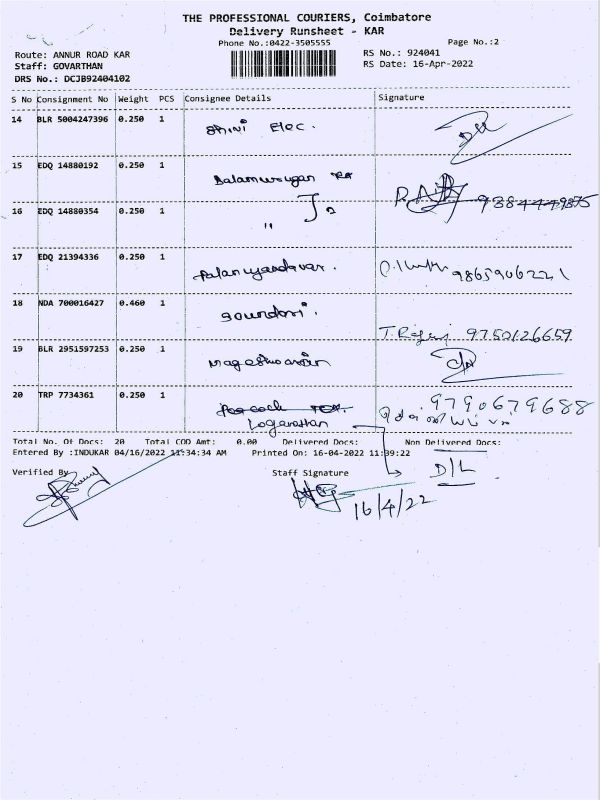 THE PROFESSIONAL COURIERS, Coimbatore
Delivery Runsheet - KAR
Phone No.:0422-3505555
Page No.:2
Route: ANNUR ROAD KAR
RS No.: 924041
Staff: GOVARTHAN
RS Date: 16-Apr-2022
DRS No.: DCJB92404102
S No Consignment No Weight PCS Consignee Details Signature
14 BLR 5004247396 0.250 1 Elec.
15 EDQ 14880192 0.250 1 Balamurugan
16 EDQ 14880354 0.250 1 "
17 EDQ 21394336 0.250 1 9865906221
18 NDA 700016427 0.460 1
9750126659
19 BLR 2951597253 0.250 1
9790679688
20 TRP 7734361 0.250 1
Loganathan
Total No. Of Docs: 20 Total COD Amt: 0.00 Delivered Docs: Non Delivered Docs:
Entered By :INDUKAR 04/16/2022 11:34:34 AM Printed On: 16-04-2022 11:39:22
D/L
Verified By
Staff Signature
16/4/22